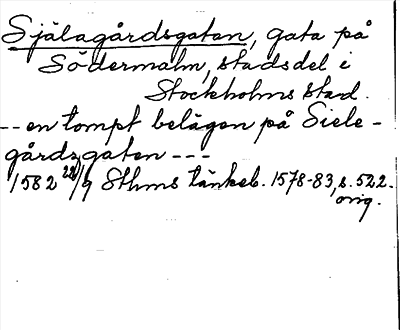 Själagårdsgatan, gata på
Södermalm, stadsdel i
Stockholms stad.
-- en tompt belägen på Siele-
gårdzgaten ---
1582 22/9 Sthms tänkeb. 1578-83, s. 522.
orig.